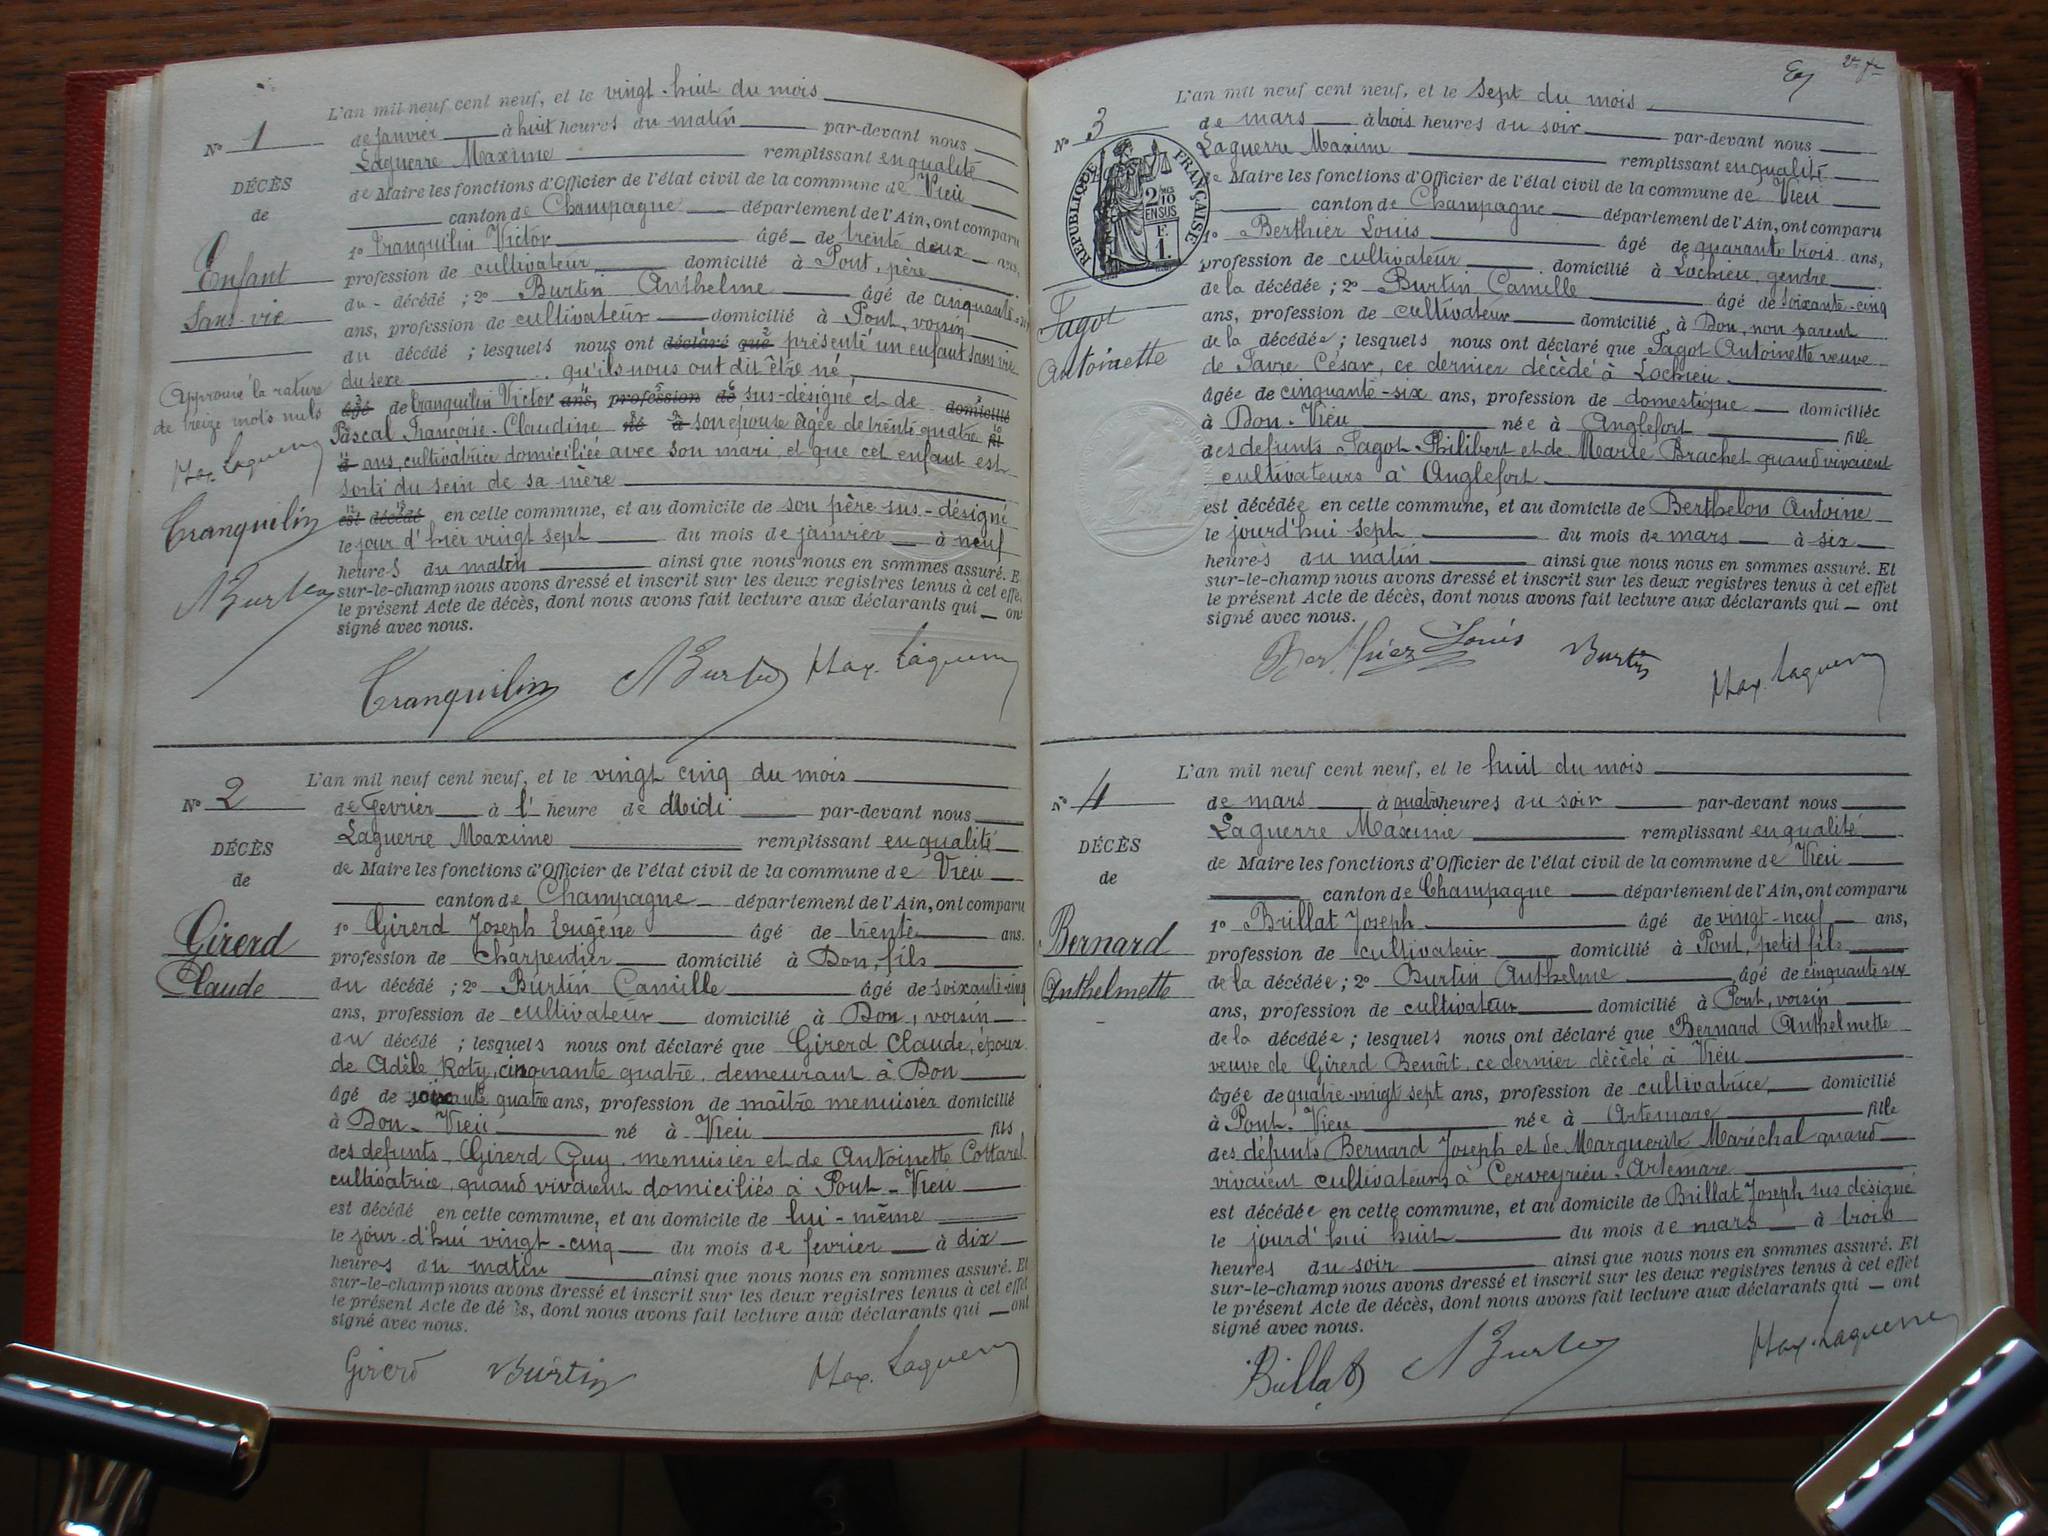 L'an mil neuf cent neuf, et le vingt-huit du mois
N° 1
de janvier à huit heures du matin par-devant nous
Laguerre Maxime remplissant en qualité
DÉCÈS
de Maire les fonctions d'Officier de l'état civil de la commune de Vieu
de
canton de Champagne département de l'Ain, ont comparu
1° Tranquilin Victor âgé de trente deux ans,
Enfant
profession de cultivateur domicilié à Pont, père
du décédé ; 2° Burtin Anthelme âgé de cinquante-six
Sans-vie
ans, profession de cultivateur domicilié à Pont, voisin
du décédé ; lesquels nous ont déclaré que présenté un enfant sans vie
du sexe qu'ils nous ont dit être né,
Approuvé la rature
de treize mots nuls
âgé de Tranquilin Victor ans, profession de sus-désigné et de domicilié
Pascal Françoise-Claudine né à son épouse âgée de trente quatre fil
à ans, cultivatrice domiciliée avec son mari, et que cet enfant est
Max. Laguerre
sorti du sein de sa mère
Tranquilin
est décédé en cette commune, et au domicile de son père sus-désigné
le jour d'hier vingt sept du mois de janvier à neuf
heures du matin ainsi que nous nous en sommes assuré. E
ABurtin
sur-le-champ nous avons dressé et inscrit sur les deux registres tenus à cet effet
le présent Acte de décès, dont nous avons fait lecture aux déclarants qui ont
signé avec nous.
Tranquilin ABurtin Max. Laguerre
L'an mil neuf cent neuf, et le vingt cinq du mois
N° 2
de fevrier à l' heure de Midi par-devant nous
Laguerre Maxime remplissant en qualité
DÉCÈS
de Maire les fonctions d'Officier de l'état civil de la commune de Vieu
de
canton de Champagne département de l'Ain, ont comparu
Girerd
1° Girerd Joseph Eugène âgé de trente ans.
profession de charpentier domicilié à Don, fils
Claude
du décédé ; 2° Burtin Camille âgé de soixante-cinq
ans, profession de cultivateur domicilié à Don, voisin
du décédé ; lesquels nous ont déclaré que Girerd Claude, époux
de Adèle Roty, cinquante quatre, demeurant à Don
âgé de soixante quatre ans, profession de maître menuisier domicilié
à Don-Vieu né à Vieu fils
des défunts Girerd Guy, menuisier et de Antoinette Cottarel
cultivatrice, quand vivaient domiciliés à Pont-Vieu
est décédé en cette commune, et au domicile de lui-même
le jour-d'hui vingt-cinq du mois de fevrier à dix
heures du matin ainsi que nous nous en sommes assuré. Et
sur-le-champ nous avons dressé et inscrit sur les deux registres tenus à cet effet
le présent Acte de décès, dont nous avons fait lecture aux déclarants qui ont
signé avec nous.
Girerd Burtin Max. Laguerre
L'an mil neuf cent neuf, et le sept du mois
N° 3
de mars à trois heures du soir par-devant nous
Laguerre Maxime remplissant en qualité
RÉPUBLIQUE FRANÇAISE
2/10 EN SUS
F. 1.
de Maire les fonctions d'Officier de l'état civil de la commune de Vieu
canton de Champagne département de l'Ain, ont comparu
1° Berthier Louis âgé de quarante trois ans,
profession de cultivateur domicilié à Lochieu, gendre
de la décédée ; 2° Burtin Camille âgé de soixante-cinq
Fagot
ans, profession de cultivateur domicilié à Don, non parent
Antoinette
de la décédée ; lesquels nous ont déclaré que Fagot Antoinette veuve
de Favre César, ce dernier décédé à Lochieu
âgée de cinquante-six ans, profession de domestique domiciliée
à Don-Vieu née à Anglefort fille
des defunts Fagot Philibert et de Marie Brachet quand vivaient
cultivateurs à Anglefort
est décédée en cette commune, et au domicile de Berthelon Antoine
le jourd'hui sept du mois de mars à six
heures du matin ainsi que nous nous en sommes assuré. Et
sur-le-champ nous avons dressé et inscrit sur les deux registres tenus à cet effet
le présent Acte de décès, dont nous avons fait lecture aux déclarants qui ont
signé avec nous.
Berthier Louis Burtin Max. Laguerre
L'an mil neuf cent neuf, et le huit du mois
N° 4
de mars à quatre heures du soir par-devant nous
Laguerre Maxime remplissant en qualité
DÉCÈS
de Maire les fonctions d'Officier de l'état civil de la commune de Vieu
de
canton de Champagne département de l'Ain, ont comparu
Bernard
1° Brillat Joseph âgé de vingt-neuf ans,
profession de cultivateur domicilié à Pont, petit fils
Anthelmette
de la décédée ; 2° Burtin Anthelme âgé de cinquante six
ans, profession de cultivateur domicilié à Pont, voisin
de la décédée ; lesquels nous ont déclaré que Bernard Anthelmette
veuve de Girerd Benoît, ce dernier décédé à Vieu
âgée de quatre-vingt sept ans, profession de cultivatrice, domicilié
à Pont-Vieu née à Artemare fille
des défunts Bernard Joseph et de Marguerite Maréchal quand
vivaient cultivateurs à Cerveyrieu-Artemare
est décédée en cette commune, et au domicile de Brillat Joseph sus désigné
le jourd'hui huit du mois de mars à trois
heures du soir ainsi que nous nous en sommes assuré. Et
sur-le-champ nous avons dressé et inscrit sur les deux registres tenus à cet effet
le présent Acte de décès, dont nous avons fait lecture aux déclarants qui ont
signé avec nous.
Brillat ABurtin Max. Laguerre